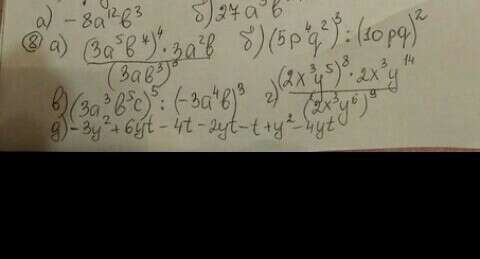 а) -8a¹²b³ б) 27a³b
⑧ а) (3a⁵b⁴)⁴ · 3a²b / (3ab³)⁵ б) (5p⁴q²)³ : (10pq)²
в) (3a³b⁵c)⁵ : (-3a⁴b)³ г) (2x³y⁵)⁸ · 2x³y¹⁴ / (2x³y⁶)⁹
д) -3y² + 6yt - 4t - 2yt - t + y² - 4yt